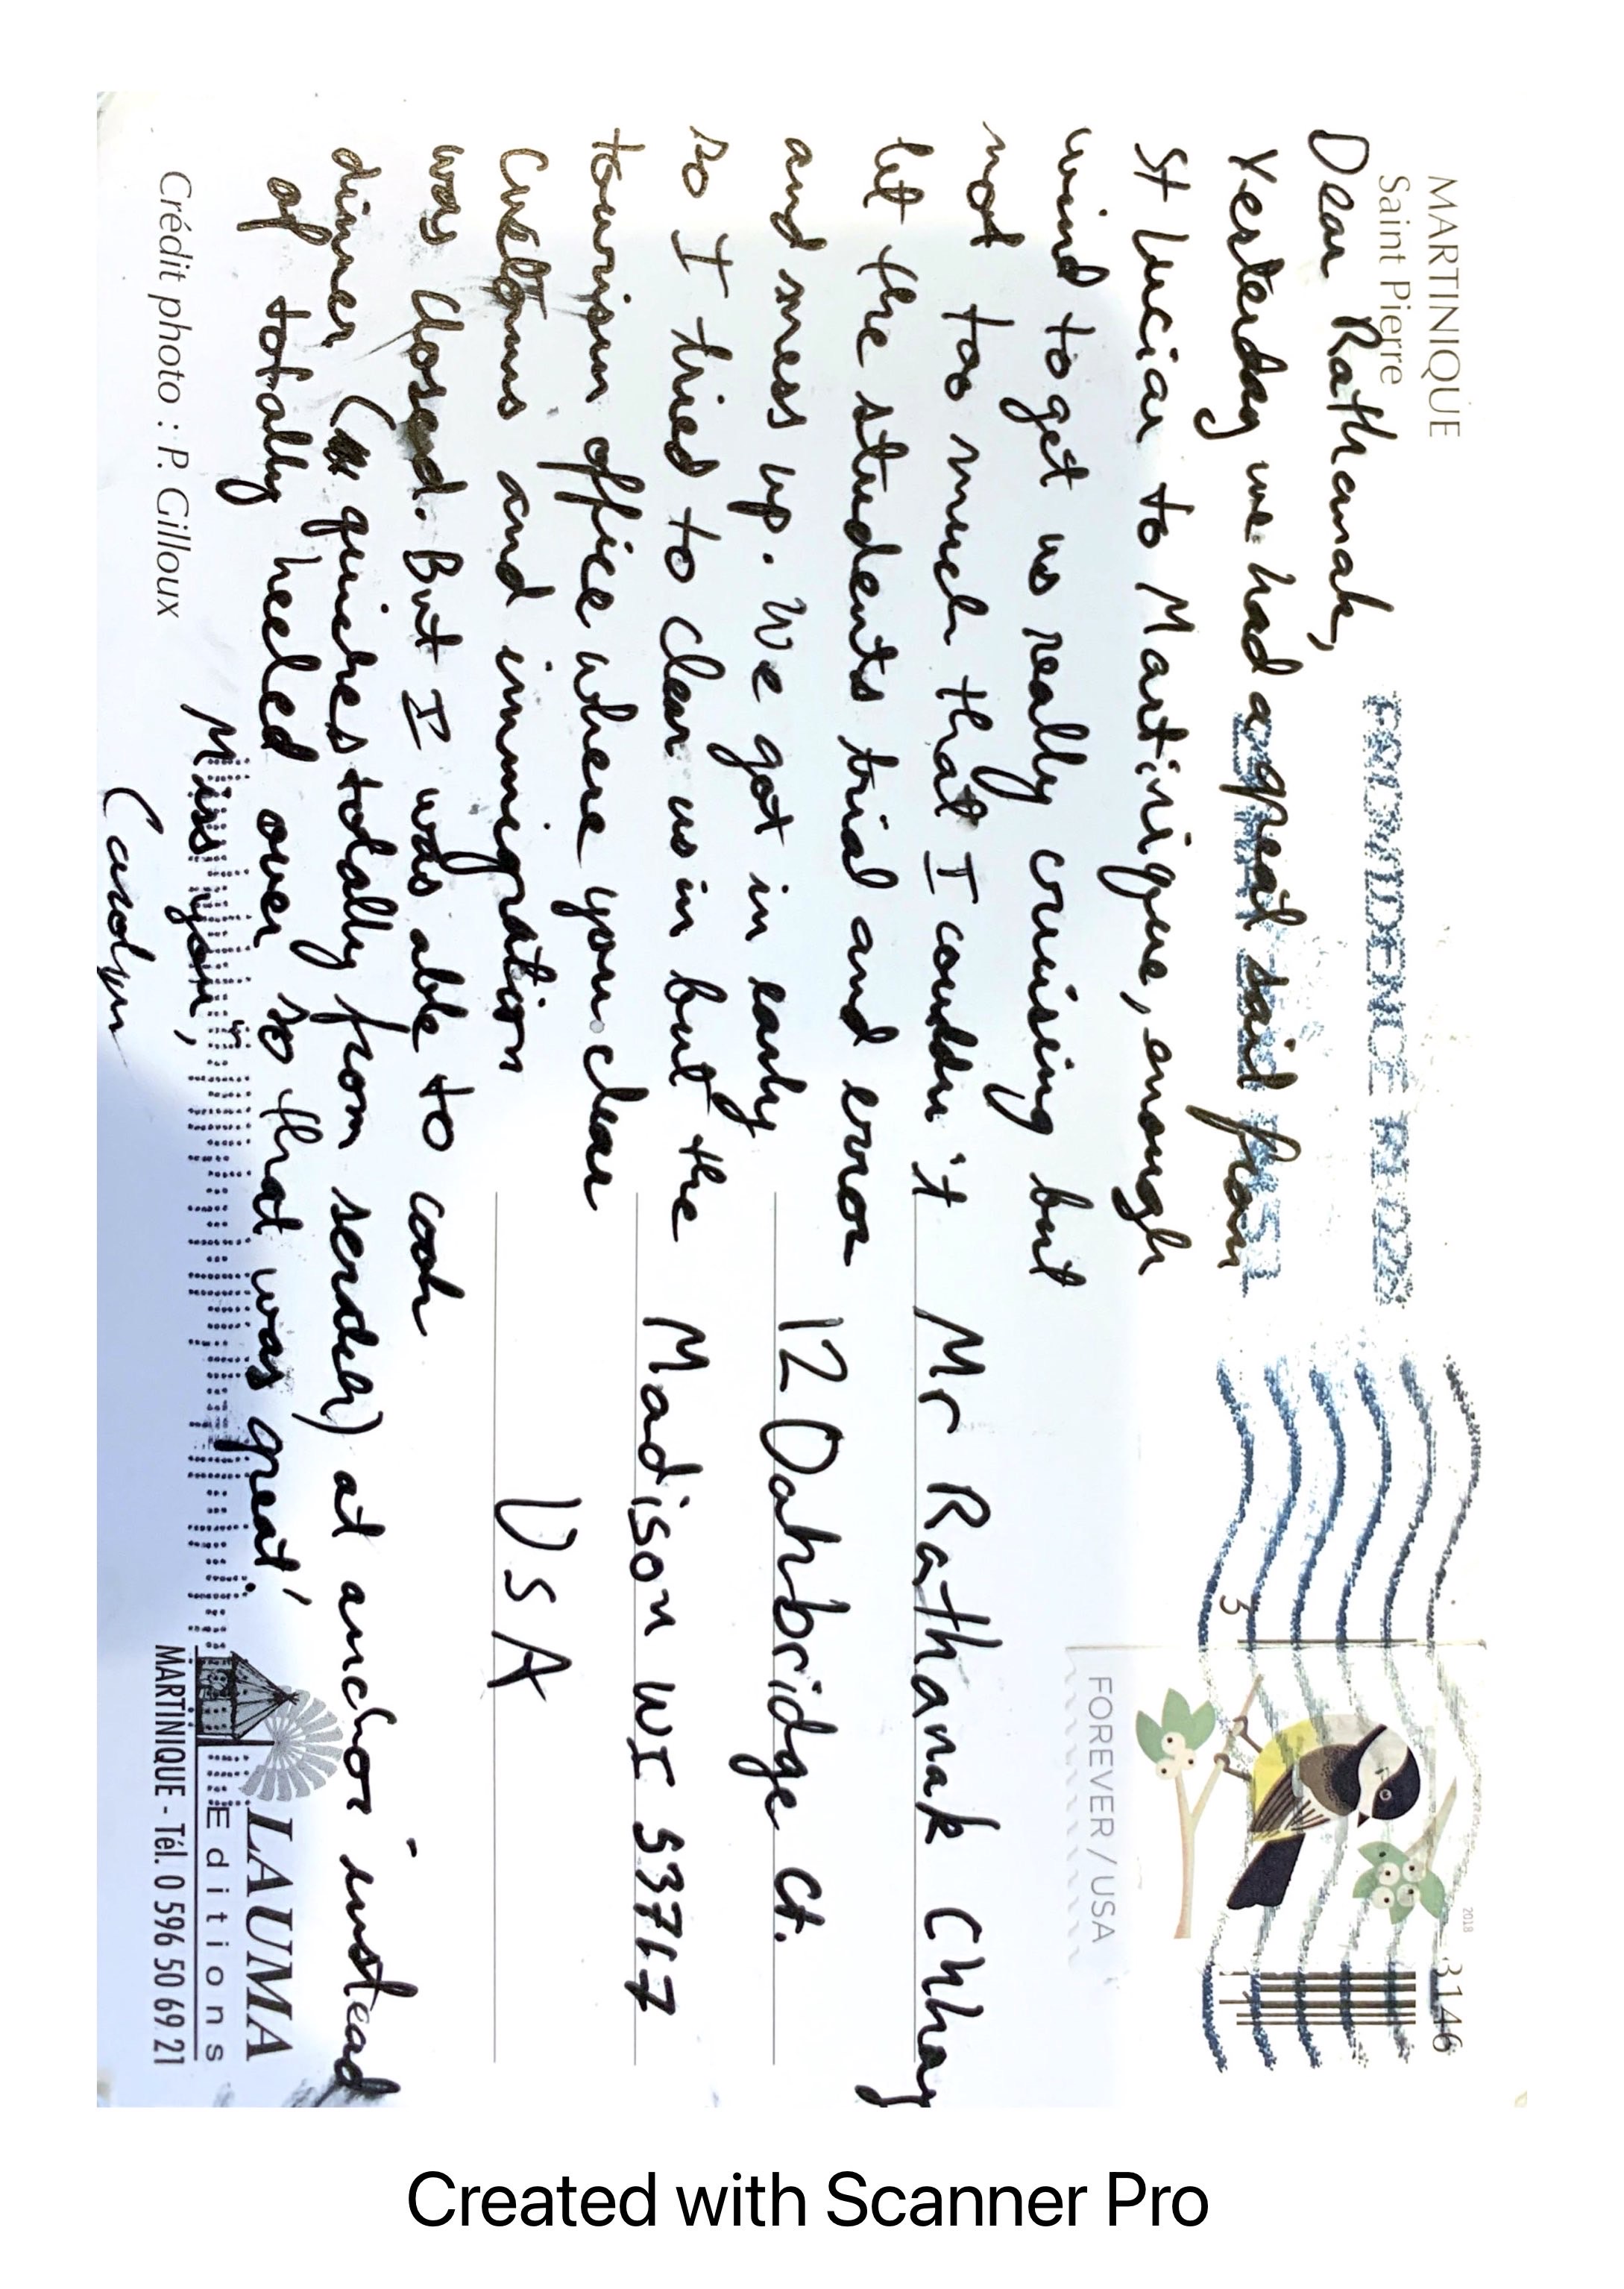 MARTINIQUE
Saint Pierre
Dear Rathanak,
Yesterday we had a great sail from
St Lucian to Martinique, enough
wind to get us really cruising but
not too much that I couldn't
let the students trial and error
and mess up. We got in early
so I tried to clear us in but the
tourism office where you clear
Customs and immigration
was closed. But I was able to
cook
dinner (quiches totally from scratch) at anchor instead
of totally heeled over so that was great!
Miss you,
Carolyn
Crédit photo : P. Gilloux
PROVIDENCE RI 028
FOREVER / USA
2018
3146
Mr Rathanak Chhay
12 Oakbridge Ct.
Madison WI 53717
USA
LAUMA
Editions
MARTINIQUE - Tél. 0 596 50 69 21
Created with Scanner Pro